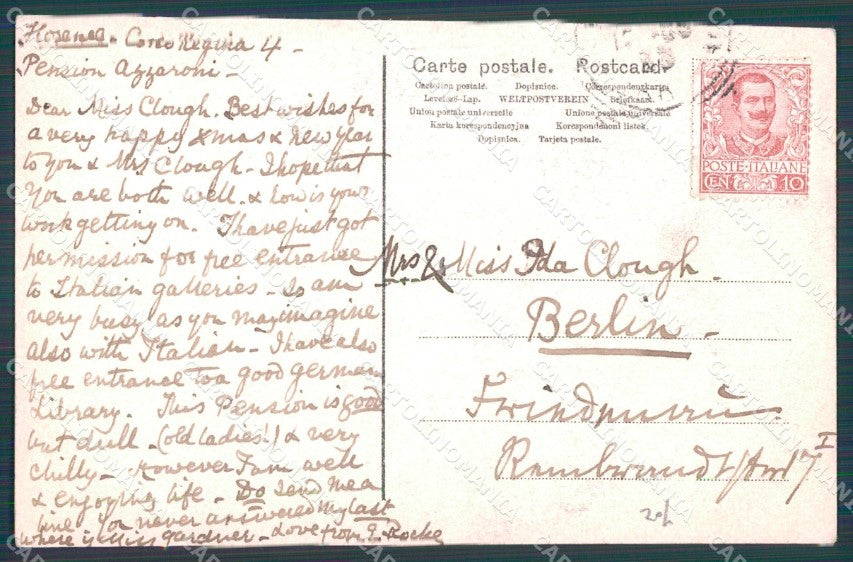 Florence - Corso Regina 4 -
Pension Azzaroni -
Dear Miss Clough. Best wishes for
a very happy Xmas & New Year
to you & Mrs Clough - I hope that
You are both well. & how is your
work getting on. I have just got
permission for free entrance
to Italian galleries - So am
very busy as you may imagine
also with Italian - I have also
free entrance to a good german
Library. This Pension is good
but dull - (old ladies!) & very
chilly - However I am well
& enjoying life - Do send me a
line You never answered my last
where is Miss Gardner - Love from E. Rocke
Carte postale. Postcard.
Cartolina postale. Dopisnice. Correspondenzkarte
Levelező-Lap. WELTPOSTVEREIN Briefkaart.
Union postale universelle Unione postale universale
Karta korespondencyjna Korespondenční lístek.
Dopisnica. Tarjeta postale.
POSTE·ITALIANE
CEN 10
Mrs & Miss Ida Clough.
Berlin -
Friedenau
I
CARTOLINOMANIA